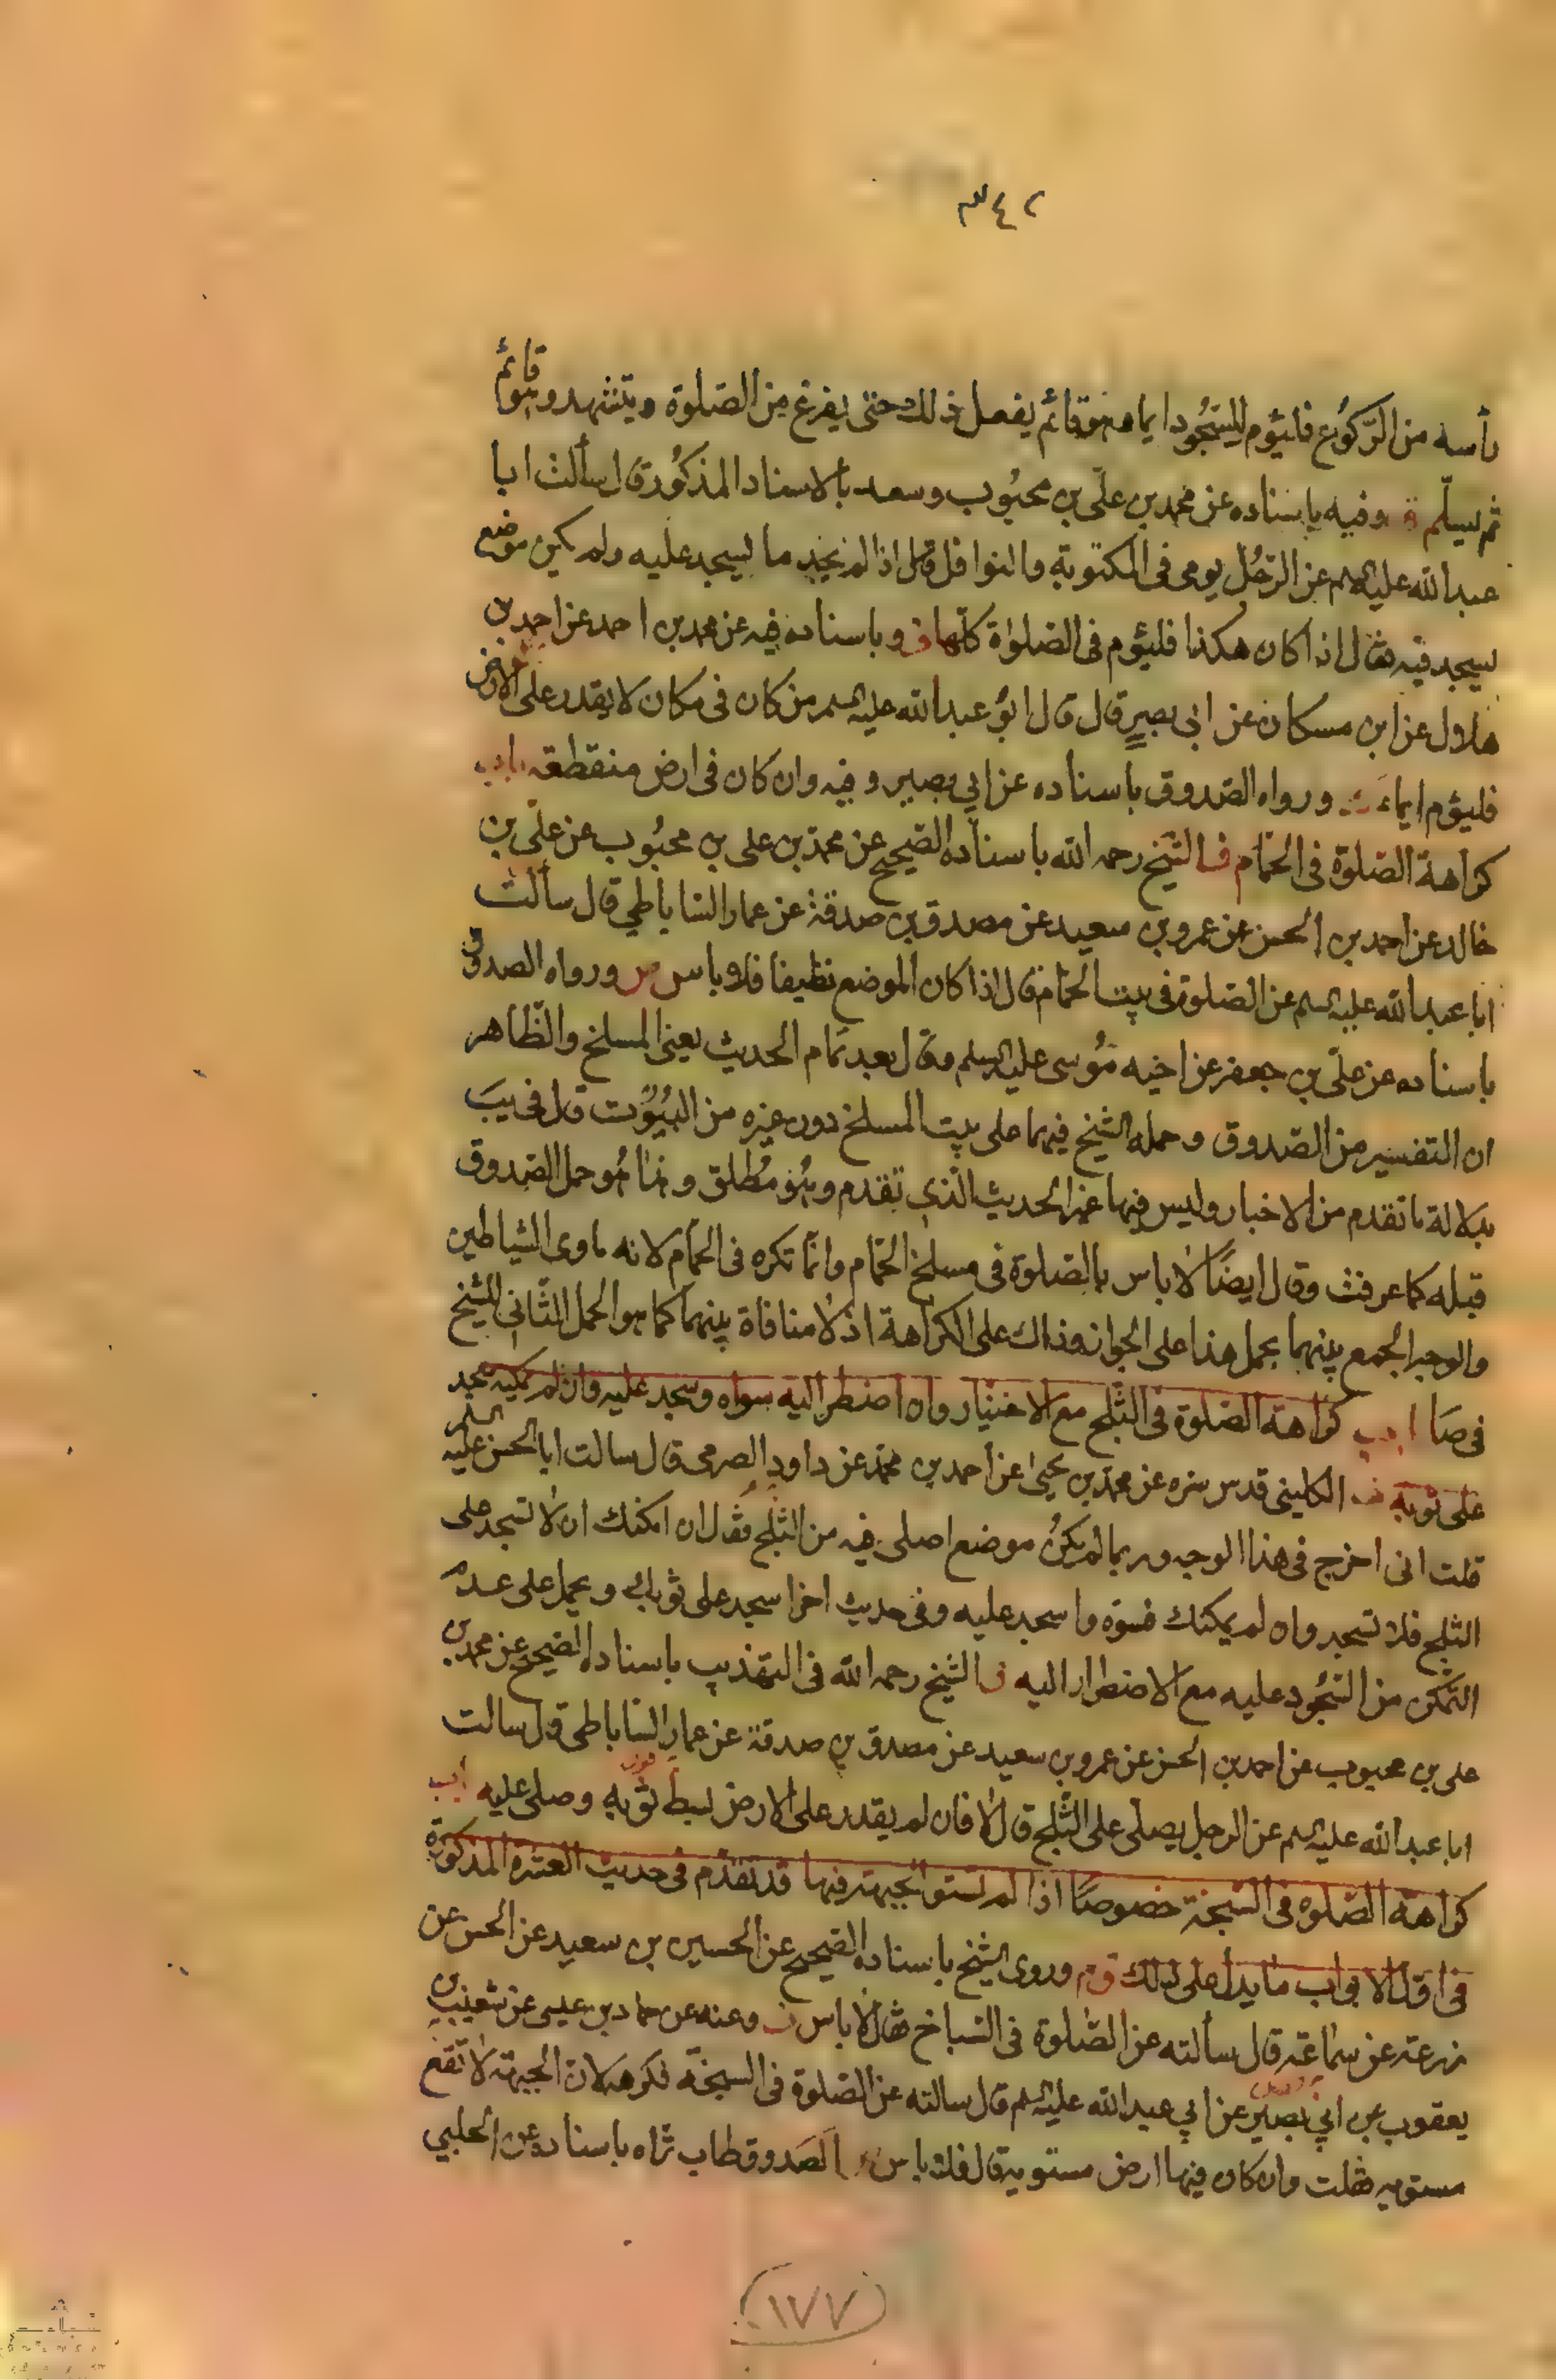 ٣٤٢
رأسه من الركوع فليؤم للسجود ايماء هو قائم يفعل ذلك حتى يفرغ من الصلوة ويتشهد وهو قائم
ثم يسلم ة وفيه باسناده عن محمد بن علي بن محبوب وسعد بالاسناد المذكور قال سألت ابا
عبد الله عليه السلم عن الرجل يومى فى المكتوبة والنوافل قال اذا لم يجد ما يسجد عليه ولم يكن موضع
يسجد فيه فقال اذا كان هكذا فليؤم فى الصلواة كلها ق وباسناده فيه عن محمد بن احمد عن احمد بن
هلال عن ابن مسكان عن ابى بصير قال قال ابو عبد الله عليه السلم من كان فى مكان لا يقدر على الارض
فليؤم ايماء ورواه الصدوق باسناده عن ابي بصير وفيه وان كان فى ارض منقطعة باب
كراهة الصلوة فى الحمام ف الشيخ رحمه الله باسناده الصحيح عن محمد بن على بن محبوب عن علي بن
خالد عن احمد بن الحسن عن عمرو بن سعيد عن مصدق بن صدقة عن عمار الساباطي قال سألت
ابا عبد الله عليه السلم عن الصلوة فى بيت الحمام قال اذا كان الموضع نظيفا فلا باس ورواه الصدوق
باسناده عن علي بن جعفر عن اخيه موسى عليه السلم وقال بعد تمام الحديث يعنى المسلخ والظاهر
ان التفسير من الصدوق وحمله الشيخ فيهما على بيت المسلخ دون غيره من البيوت قال فى يب
بدلالة ما تقدم من الاخبار وليس فيها غير الحديث الذي تقدم وهو مطلق وهذا هو حمل الصدوق
قبله كما عرفت وقال ايضا لا باس بالصلوة فى مسلخ الحمام وانما تكره فى الحمام لانه ماوى الشياطين
والوجه الجمع بينهما بحمل هذا على الجواز وذاك على الكراهة اذ لا منافاة بينهما كما هو الحمل الثاني للشيخ
فى صا باب كراهة الصلوة فى الثلج مع الاختيار وان اضطر اليه سواه وسجد عليه وان لم يمكنه سجد
على ثوبه الكليني قدس سره عن محمد بن يحيى عن احمد بن محمد عن داود الصرمى قال سالت ابا الحسن عليه السلم
قلت انى اخرج فى هذا الوجه وربما لم يكن موضع اصلى فيه من الثلج فقال ان امكنك ان لا تسجد على
الثلج فلا تسجد وان لم يمكنك فسوه واسجد عليه وفى حديث اخر اسجد على ثوبك ويحمل على عدم
التمكن من السجود عليه مع الاضطرار اليه ف الشيخ رحمه الله فى التهذيب باسناده الصحيح عن محمد بن
على بن محبوب عن احمد بن الحسن عن عمرو بن سعيد عن مصدق بن صدقة عن عمار الساباطى قال سالت
ابا عبد الله عليه السلم عن الرجل يصلى على الثلج قال لا فان لم يقدر على الارض بسط ثوبه وصلى عليه باب
كراهة الصلوة فى السبخة خصوصا اذا لم تستو الجبهة فيها قد تقدم فى حديث العشرة المذكورة
فى اول الابواب ما يدل على ذلك وروى الشيخ باسناده الصحيح عن الحسين بن سعيد عن الحسن عن
زرعة عن سماعة قال سألته عن الصلوة فى السباخ فقال لا باس وعنه عن حماد بن عيسى عن شعيب بن
يعقوب عن ابي بصير عن ابي عبد الله عليه السلم قال سالته عن الصلوة فى السبخة فكرهه لان الجبهة لا تقع
مستويه فقلت وان كان فيها ارض مستوية قال فلا باس الصدوق طاب ثراه باسناده عن الحلبي
١٧٧